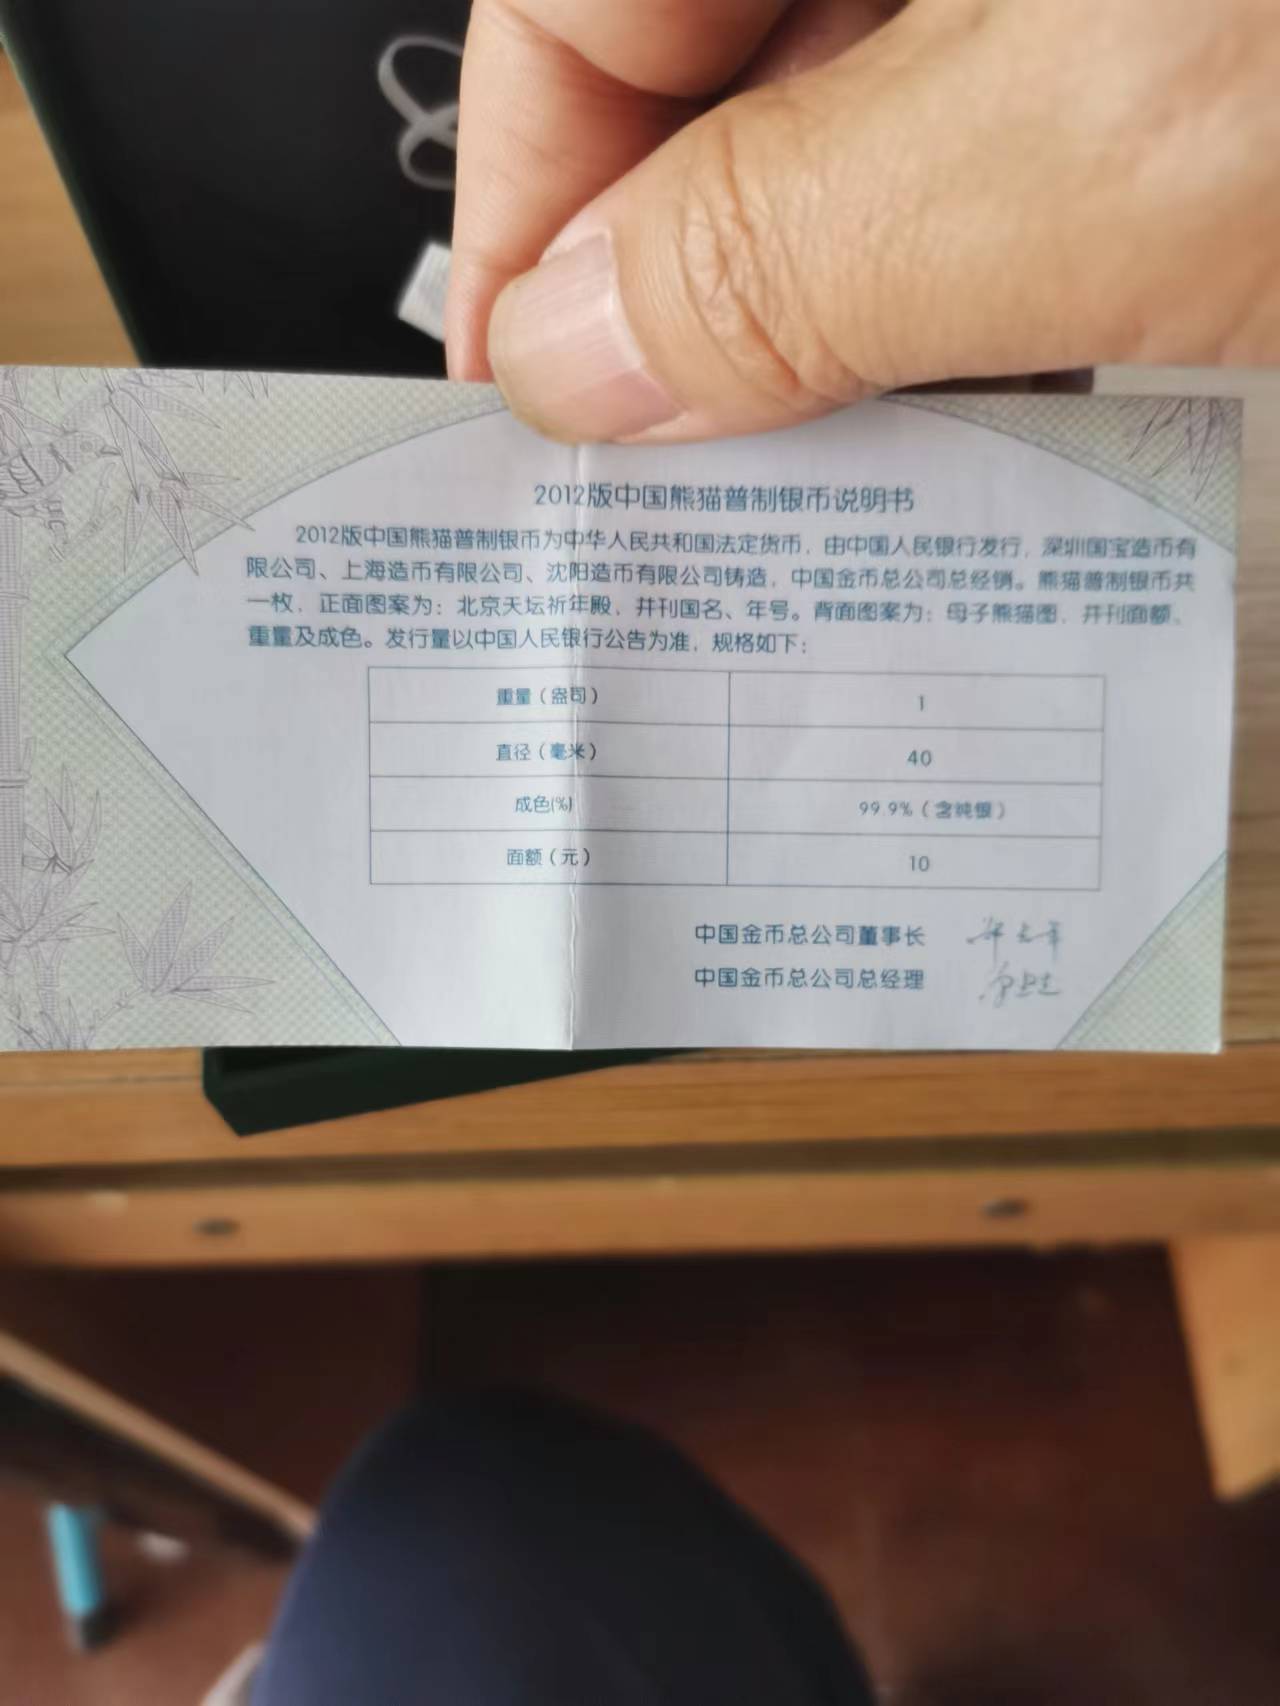 2012版中国熊猫普制银币说明书
2012版中国熊猫普制银币为中华人民共和国法定货币，由中国人民银行发行，深圳国宝造币有
限公司、上海造币有限公司、沈阳造币有限公司铸造，中国金币总公司总经销。熊猫普制银币共
一枚，正面图案为：北京天坛祈年殿，并刊国名、年号。背面图案为：母子熊猫图，并刊面额、
重量及成色。发行量以中国人民银行公告为准，规格如下：
重量（盎司） 1
直径（毫米） 40
成色(%) 99.9%（含纯银）
面额（元） 10
中国金币总公司董事长
中国金币总公司总经理